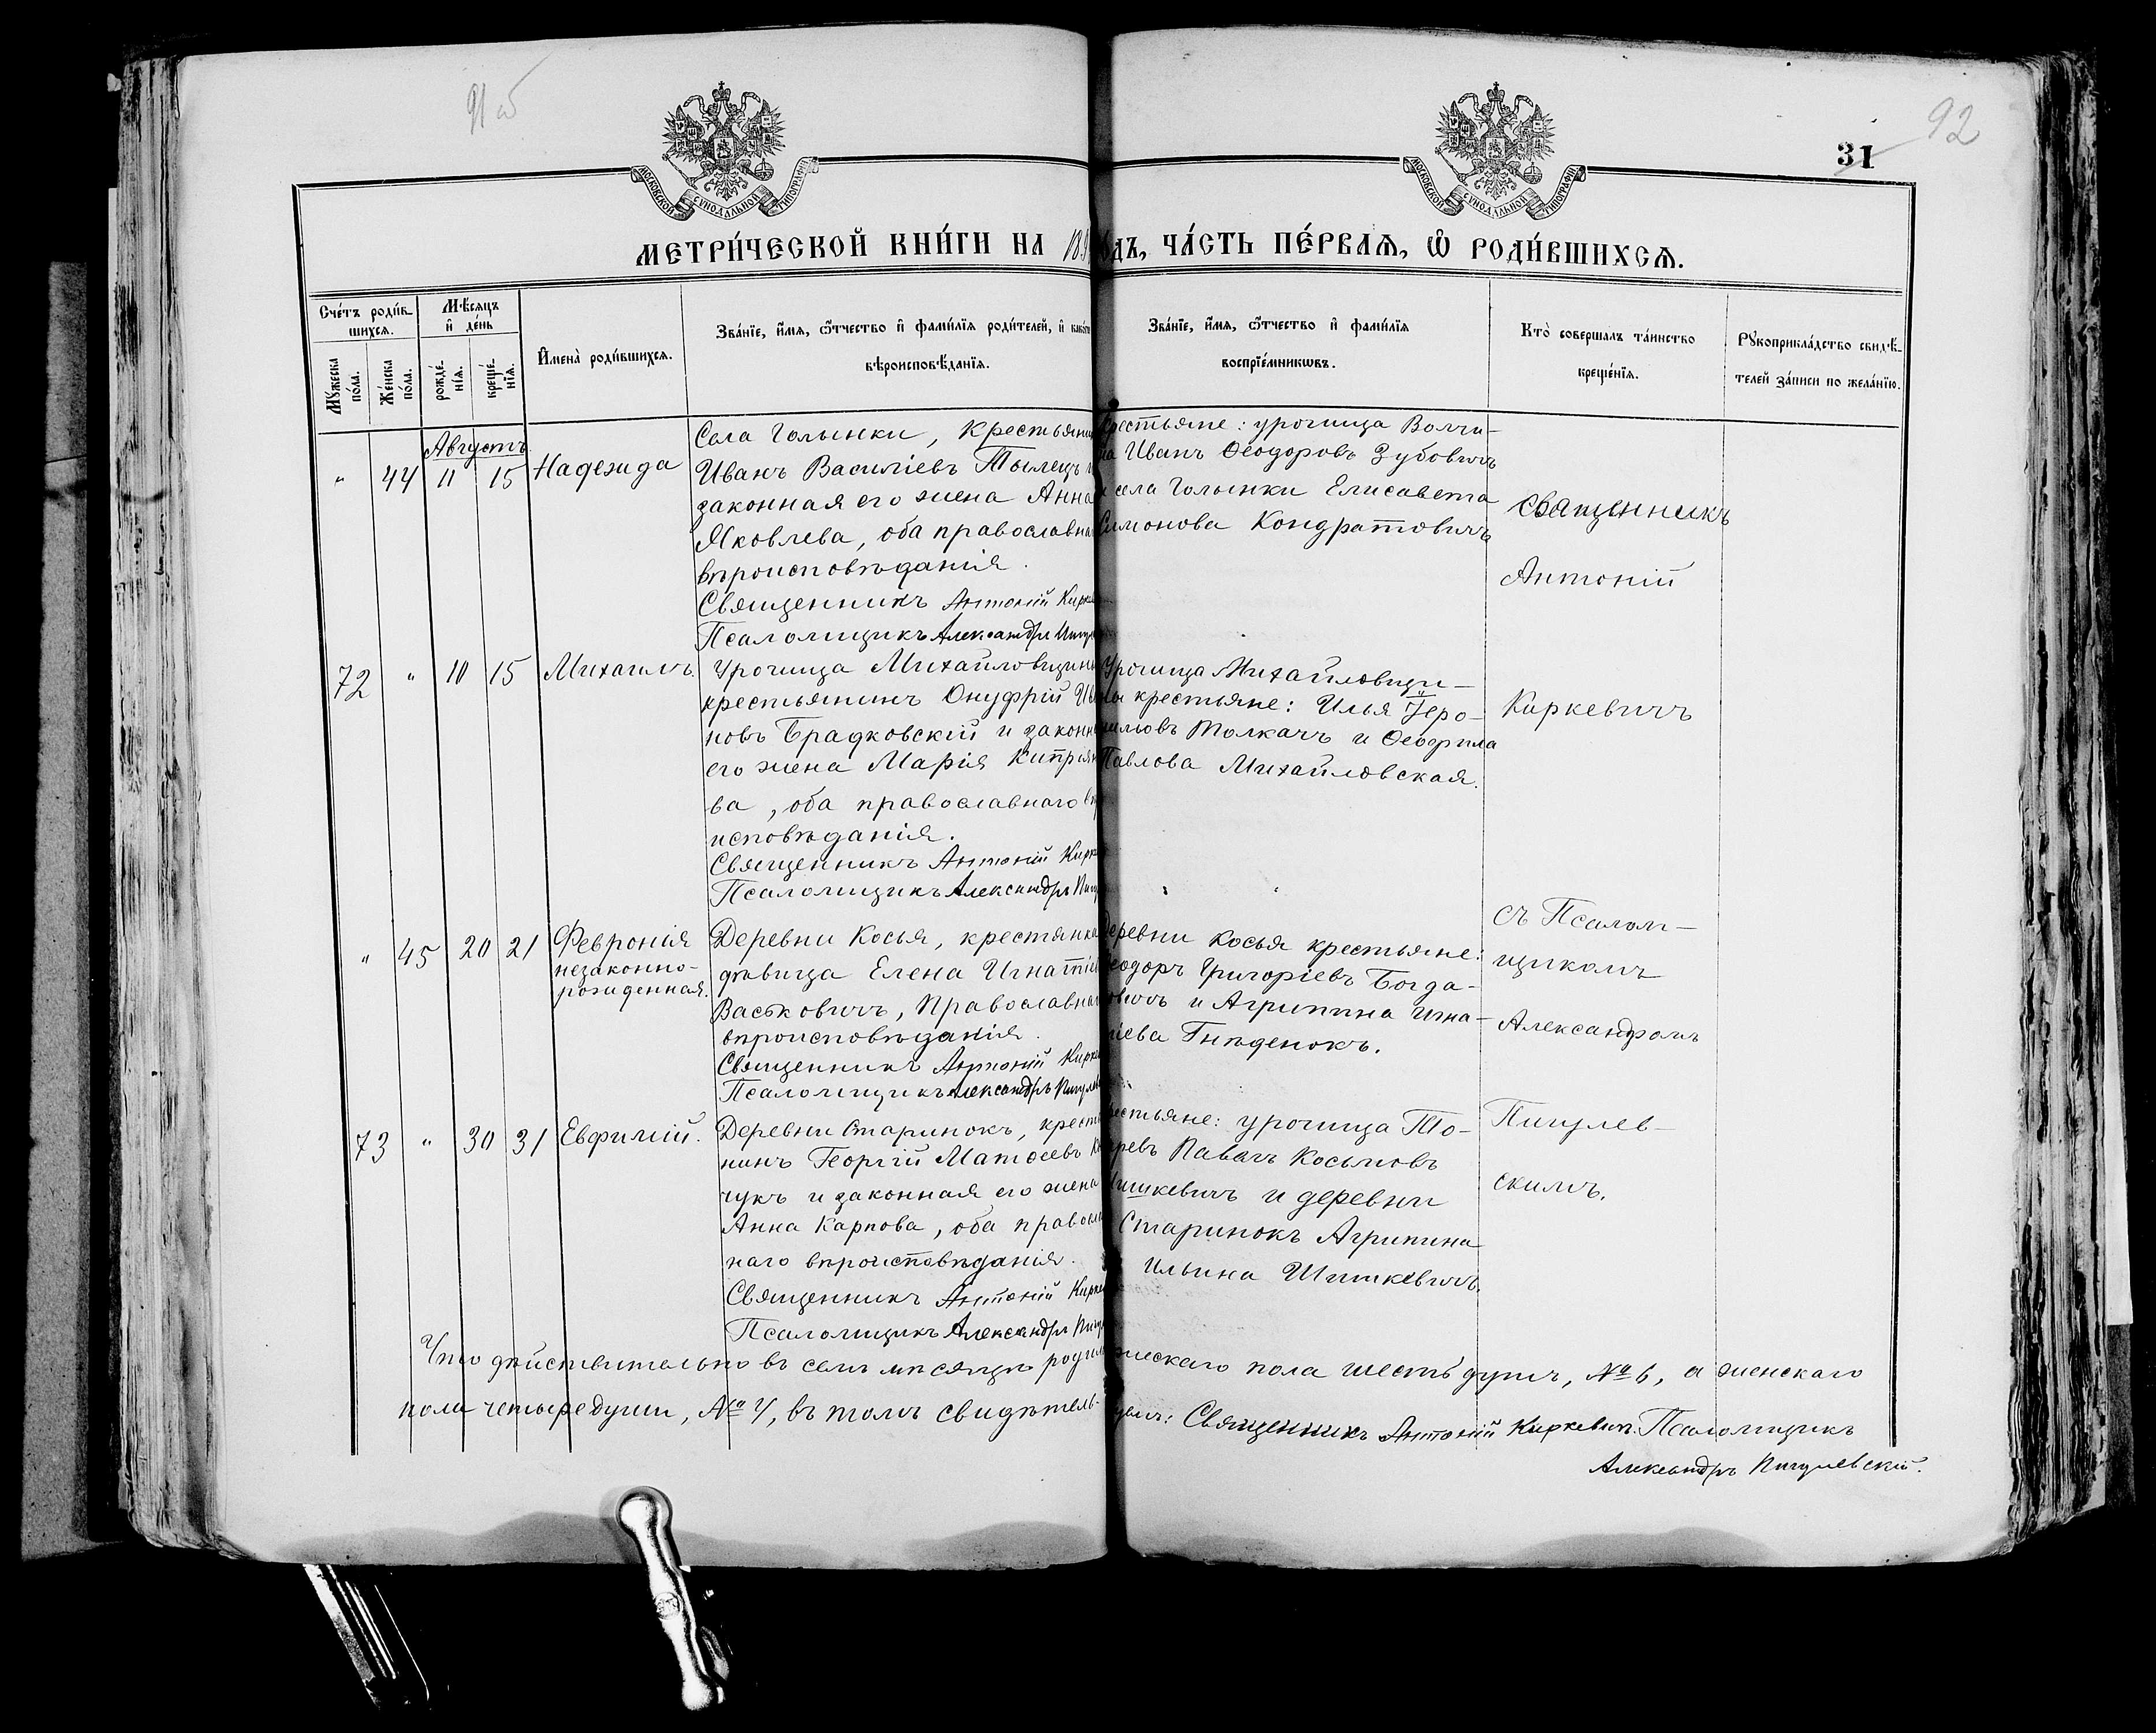 91об
92
31
МОСКОВСКОЙ СѴНОДАЛЬНОЙ ТИПОГРАФІИ
МОСКОВСКОЙ СѴНОДАЛЬНОЙ ТИПОГРАФІИ
МЕТРИ́ЧЕСКОЙ КНИ́ГИ НА 189
ОДЪ, ЧА́СТЬ ПЕ́РВАѦ, Ѡ҆ РОДИ́ВШИХСѦ.
Сче́тъ роди́в-
шихсѧ.
Мꙋ́жеска по́ла.
Же́нска по́ла.
Мѣ́сѧцъ и҆ де́нь
рожде́-нїѧ.
креще́-нїѧ.
И҆мена̀ роди́вшихсѧ.
Зва́нїе, и҆́мѧ, ѻ҆́тчество и҆ фами́лїѧ роди́телей, и҆ како́
вѣроисповѣ́данїѧ.
Зва́нїе, и҆́мѧ, ѻ҆́тчество и҆ фами́лїѧ
воспрїе́мникѡвъ.
Кто̀ соверша́лъ та́инство
креще́нїѧ.
Рꙋкоприкла́дство свидѣ́-
телей за́писи по жела́нїю.
Августъ
" 44 11 15 Надежда
Села Голынки, Крестьянин
Иванъ Василіевъ Тылецъ и
законная его жена Анна
Яковлева, оба православна
вѣроисповѣданія.
Священникъ Антоній Кирке
Псаломщикъ Александръ Пигул
рестьяне: урочища Волчи-
на Иванъ Ѳеодоровъ Зубовичъ
и села Голынки Елисавета
Симонова Кондратовичъ
Священникъ
Антоній
72 " 10 15 Михаилъ.
Урочища Михайловщины
крестьянинъ Онуфрій Ива
новъ Брадковскій и законн
его жена Марія Кипріян
ва, оба православнаго вѣ
исповѣданія.
Священникъ Антоній Кирк
Псаломщикъ Александръ Пигу
Урочища Михайловщи-
ны крестьяне: Илья Іеро-
нимовъ Толкачъ и Ѳеофила
Павлова Михайловская.
Киркевичъ
" 45 20 21 Февронія
незаконно-
рожденная.
Деревни Косья, крестянка
дѣвица Елена Игнатіе
Васьковичъ, Православна
вѣроисповѣданія.
Священникъ Антоній Кирке
Псаломщикъ Александръ Пигулев
Деревни Косья крестьяне:
еодоръ Григоріевъ Богда-
новичъ и Агрипина Игна-
тіева Гнѣденокъ.
съ Псалом-
щикомъ
Александромъ
73 " 30 31 Евфимій.
Деревни Старинокъ, крест
нинъ Георгій Матѳеевъ К
чукъ и законная его жена
Анна Карпова, оба правосл
наго вѣроисповѣданія.
Священникъ Антоній Кирке
Псаломщикъ Александръ Пигу
рестьяне: урочища То-
Павелъ Косьмовъ
Шишкевичъ и деревни
Старинокъ Агрипина
Ильина Шишкевичъ.
Пигулев-
скимъ.
Что дѣйствительно въ семъ мѣсяцѣ родил жескаго пола шесть душъ, № 6, а женскаго
пола четыре души, № 4, въ томъ свидѣтель- уемъ: Священникъ Антоній Киркевичъ. Псаломщикъ
Александръ Пигулевскій.